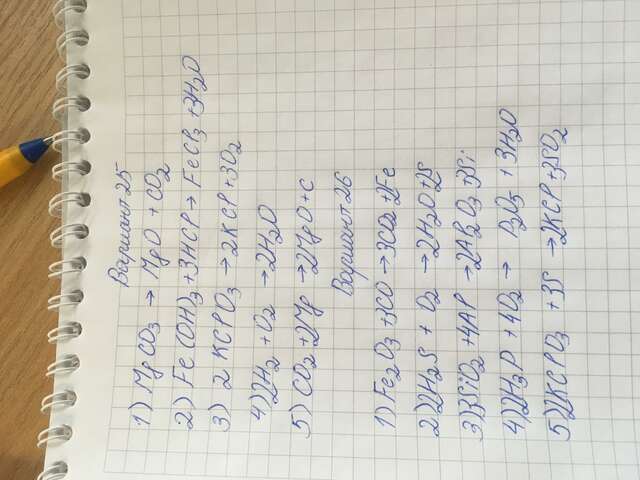 Вариант 25
1) MgCO₃ → MgO + CO₂
2) Fe(OH)₃ + 3HCl → FeCl₃ + 3H₂O
3) 2KClO₃ → 2KCl + 3O₂
4) 2H₂ + O₂ → 2H₂O
5) CO₂ + 2Mg → 2MgO + C
Вариант 26
1) Fe₂O₃ + 3CO → 3CO₂ + 2Fe
2) 2H₂S + O₂ → 2H₂O + 2S
3) 3SiO₂ + 4Al → 2Al₂O₃ + 3Si
4) 2H₃P + 4O₂ → P₂O₅ + 3H₂O
5) 2KClO₃ + 3S → 2KCl + 3SO₂